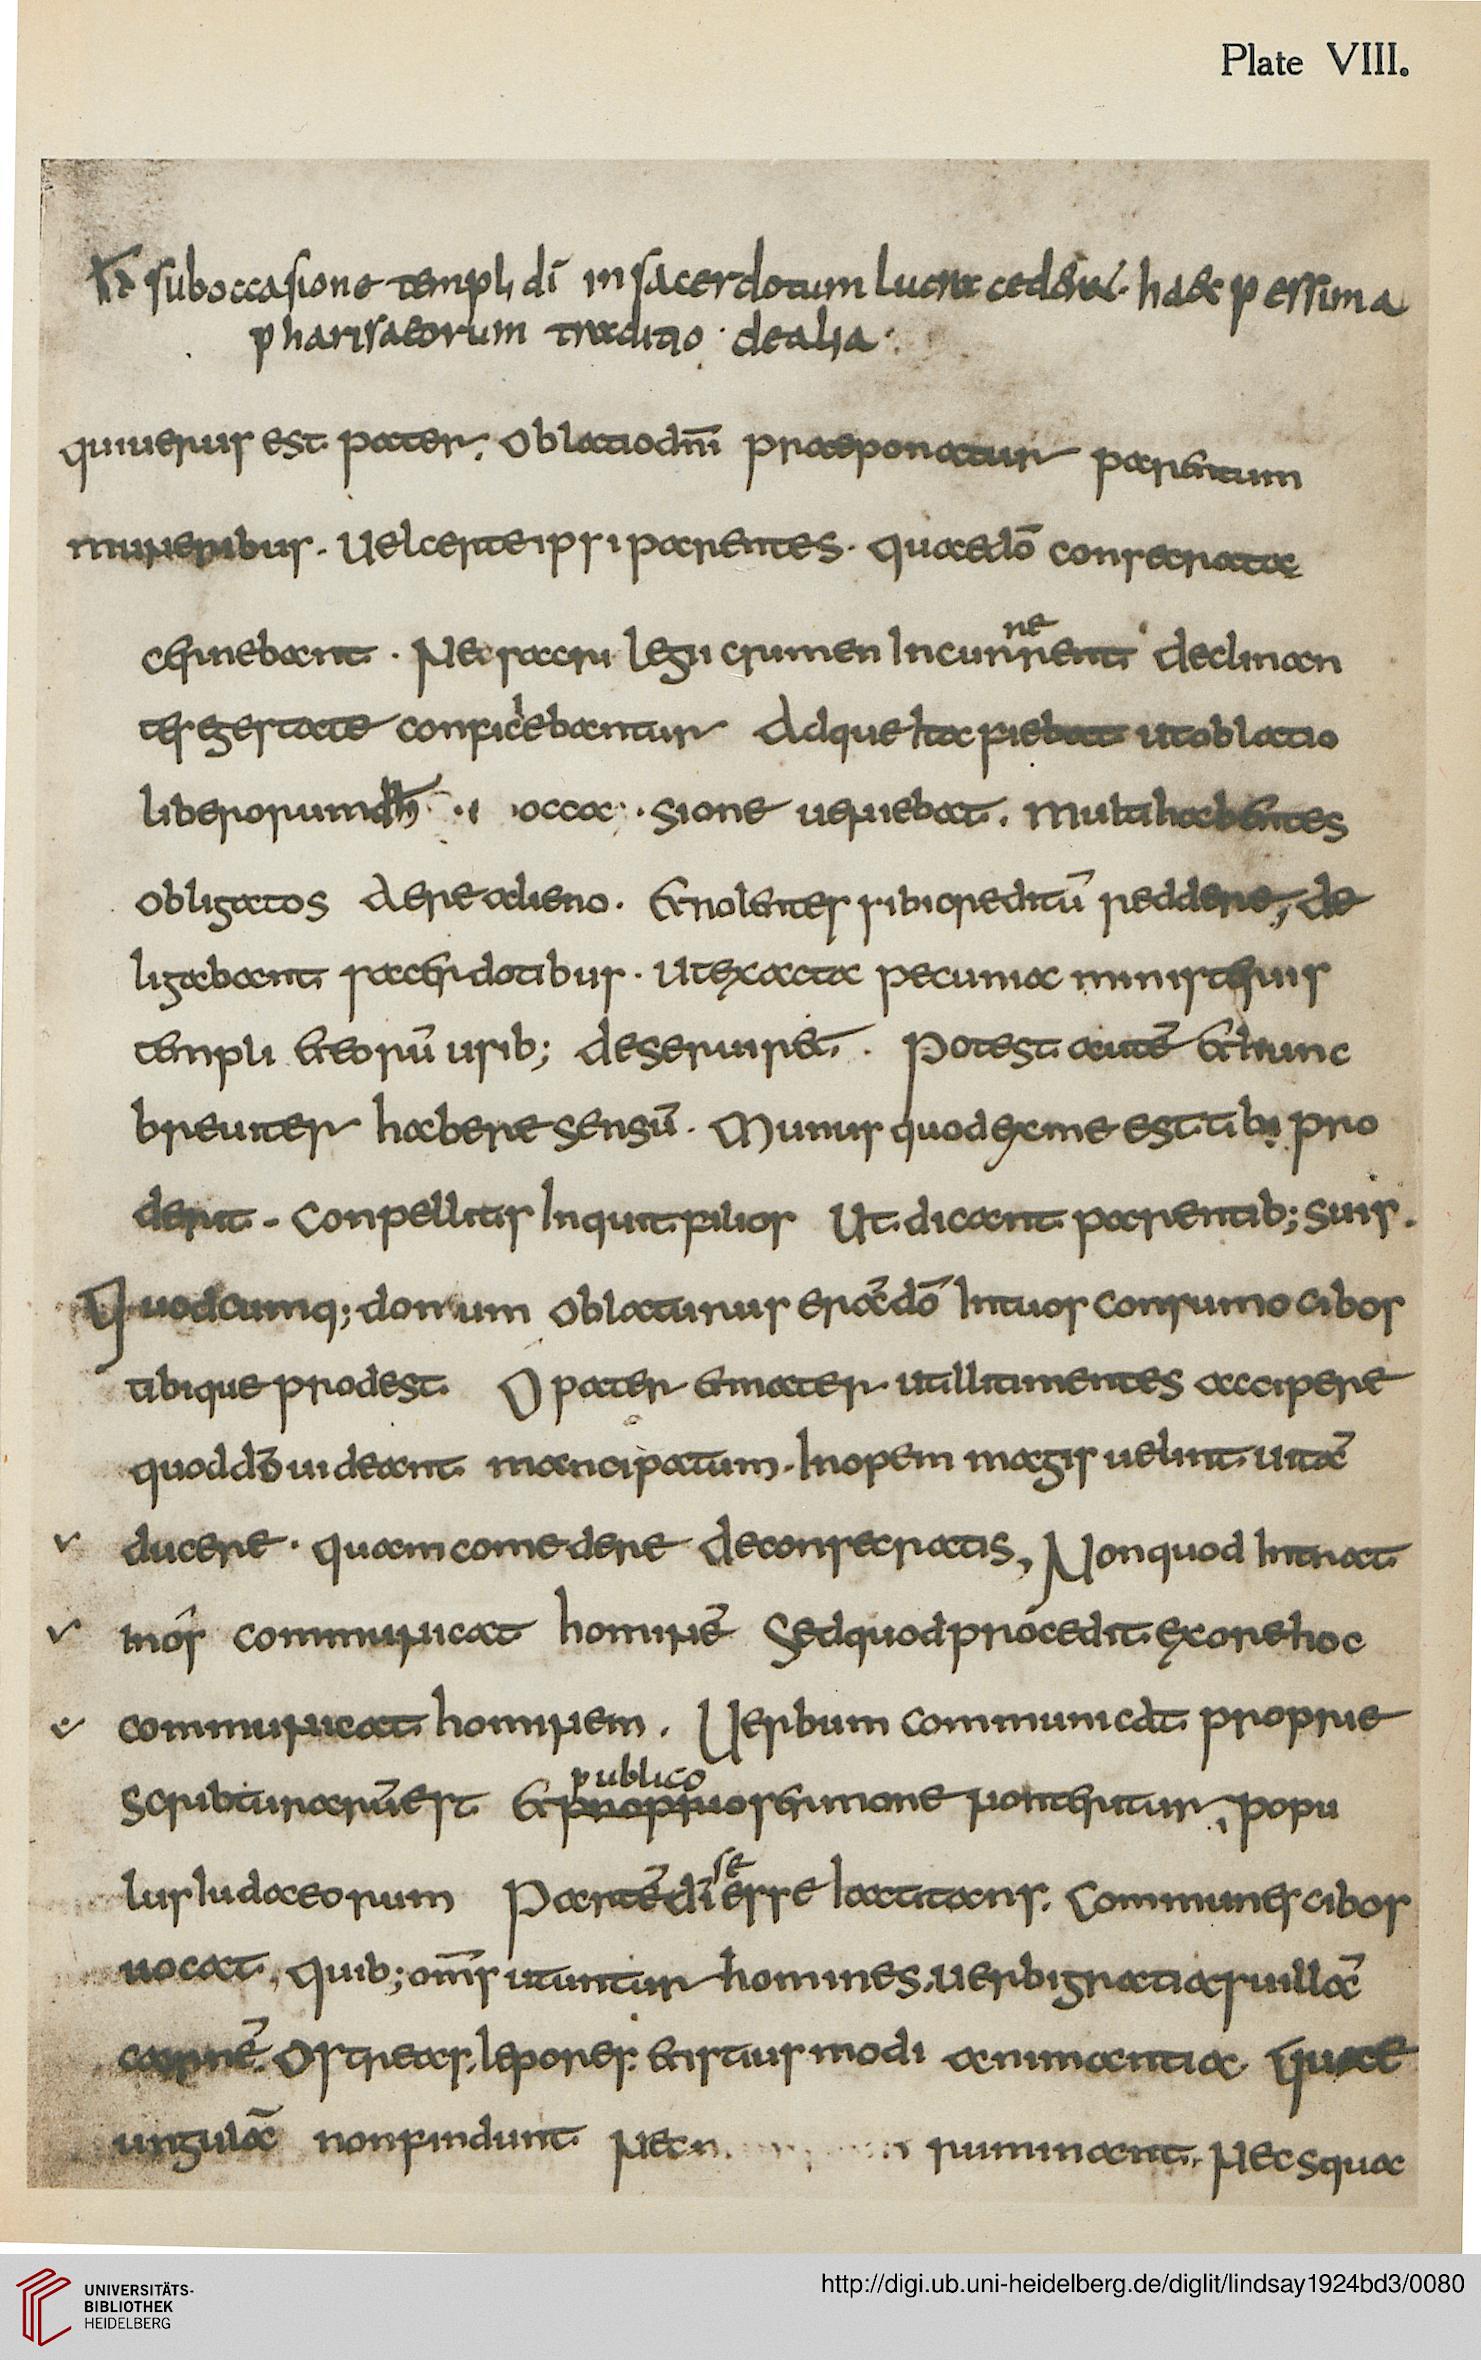 Plate VIII.
sub occasione templi dī in sacerdotum lucra cederēt · haec pessima
pharisaeorum traditio · de alia ·
qui uerus est pater. Oblatio dn̄i praeponatur parentum
muneribus. Uel certe ipsi parentes. quae dō consecrata
cernebant. Ne sacrilegii crimen Incurrerent declinan
tes egestate conficiebantur Adque ita fiebat ut oblatio
liberorum occa sione ueniebat. Multi habentes
obligatos Aere alieno. Et nolentes sibi creditū reddere, de
ligabant sacerdotibus. Ut exacta pecunia ministeriis
templi et eorū usib; deseruiret. Potest autē et hunc
breuiter habere sensū. Munus quod ex me est tibi pro
derit. Conpellitis Inquit filios Ut dicant parentib; suis.
Quodcumq; donum oblaturus erā dō In tuos consumo cibos
tibique prodest O pater et mater ut illi timentes accipere
quod dō uideant mancipatum. Inopem magis uelint uitā
ducere. quam comedere de consecratis, Non quod Intrat
In ōs communicat hominē Sed quod procedit ex ore hoc
communicat hominem. Uerbum communicat proprie
scribturarū est Et propriuo sermone non teritur, popu
publico
lus Iudaeorum Partē dī esse Iactitans. Communes cibos
se
uocat, quib; om̄s utuntur homines. Uerbi gratia suillā
carnē. Ostreas. lepores. et istius modi animantia quae
ungulā non findunt nec ruminant. Nec squa
UNIVERSITÄTS-
BIBLIOTHEK
HEIDELBERG
http://digi.ub.uni-heidelberg.de/diglit/lindsay1924bd3/0080